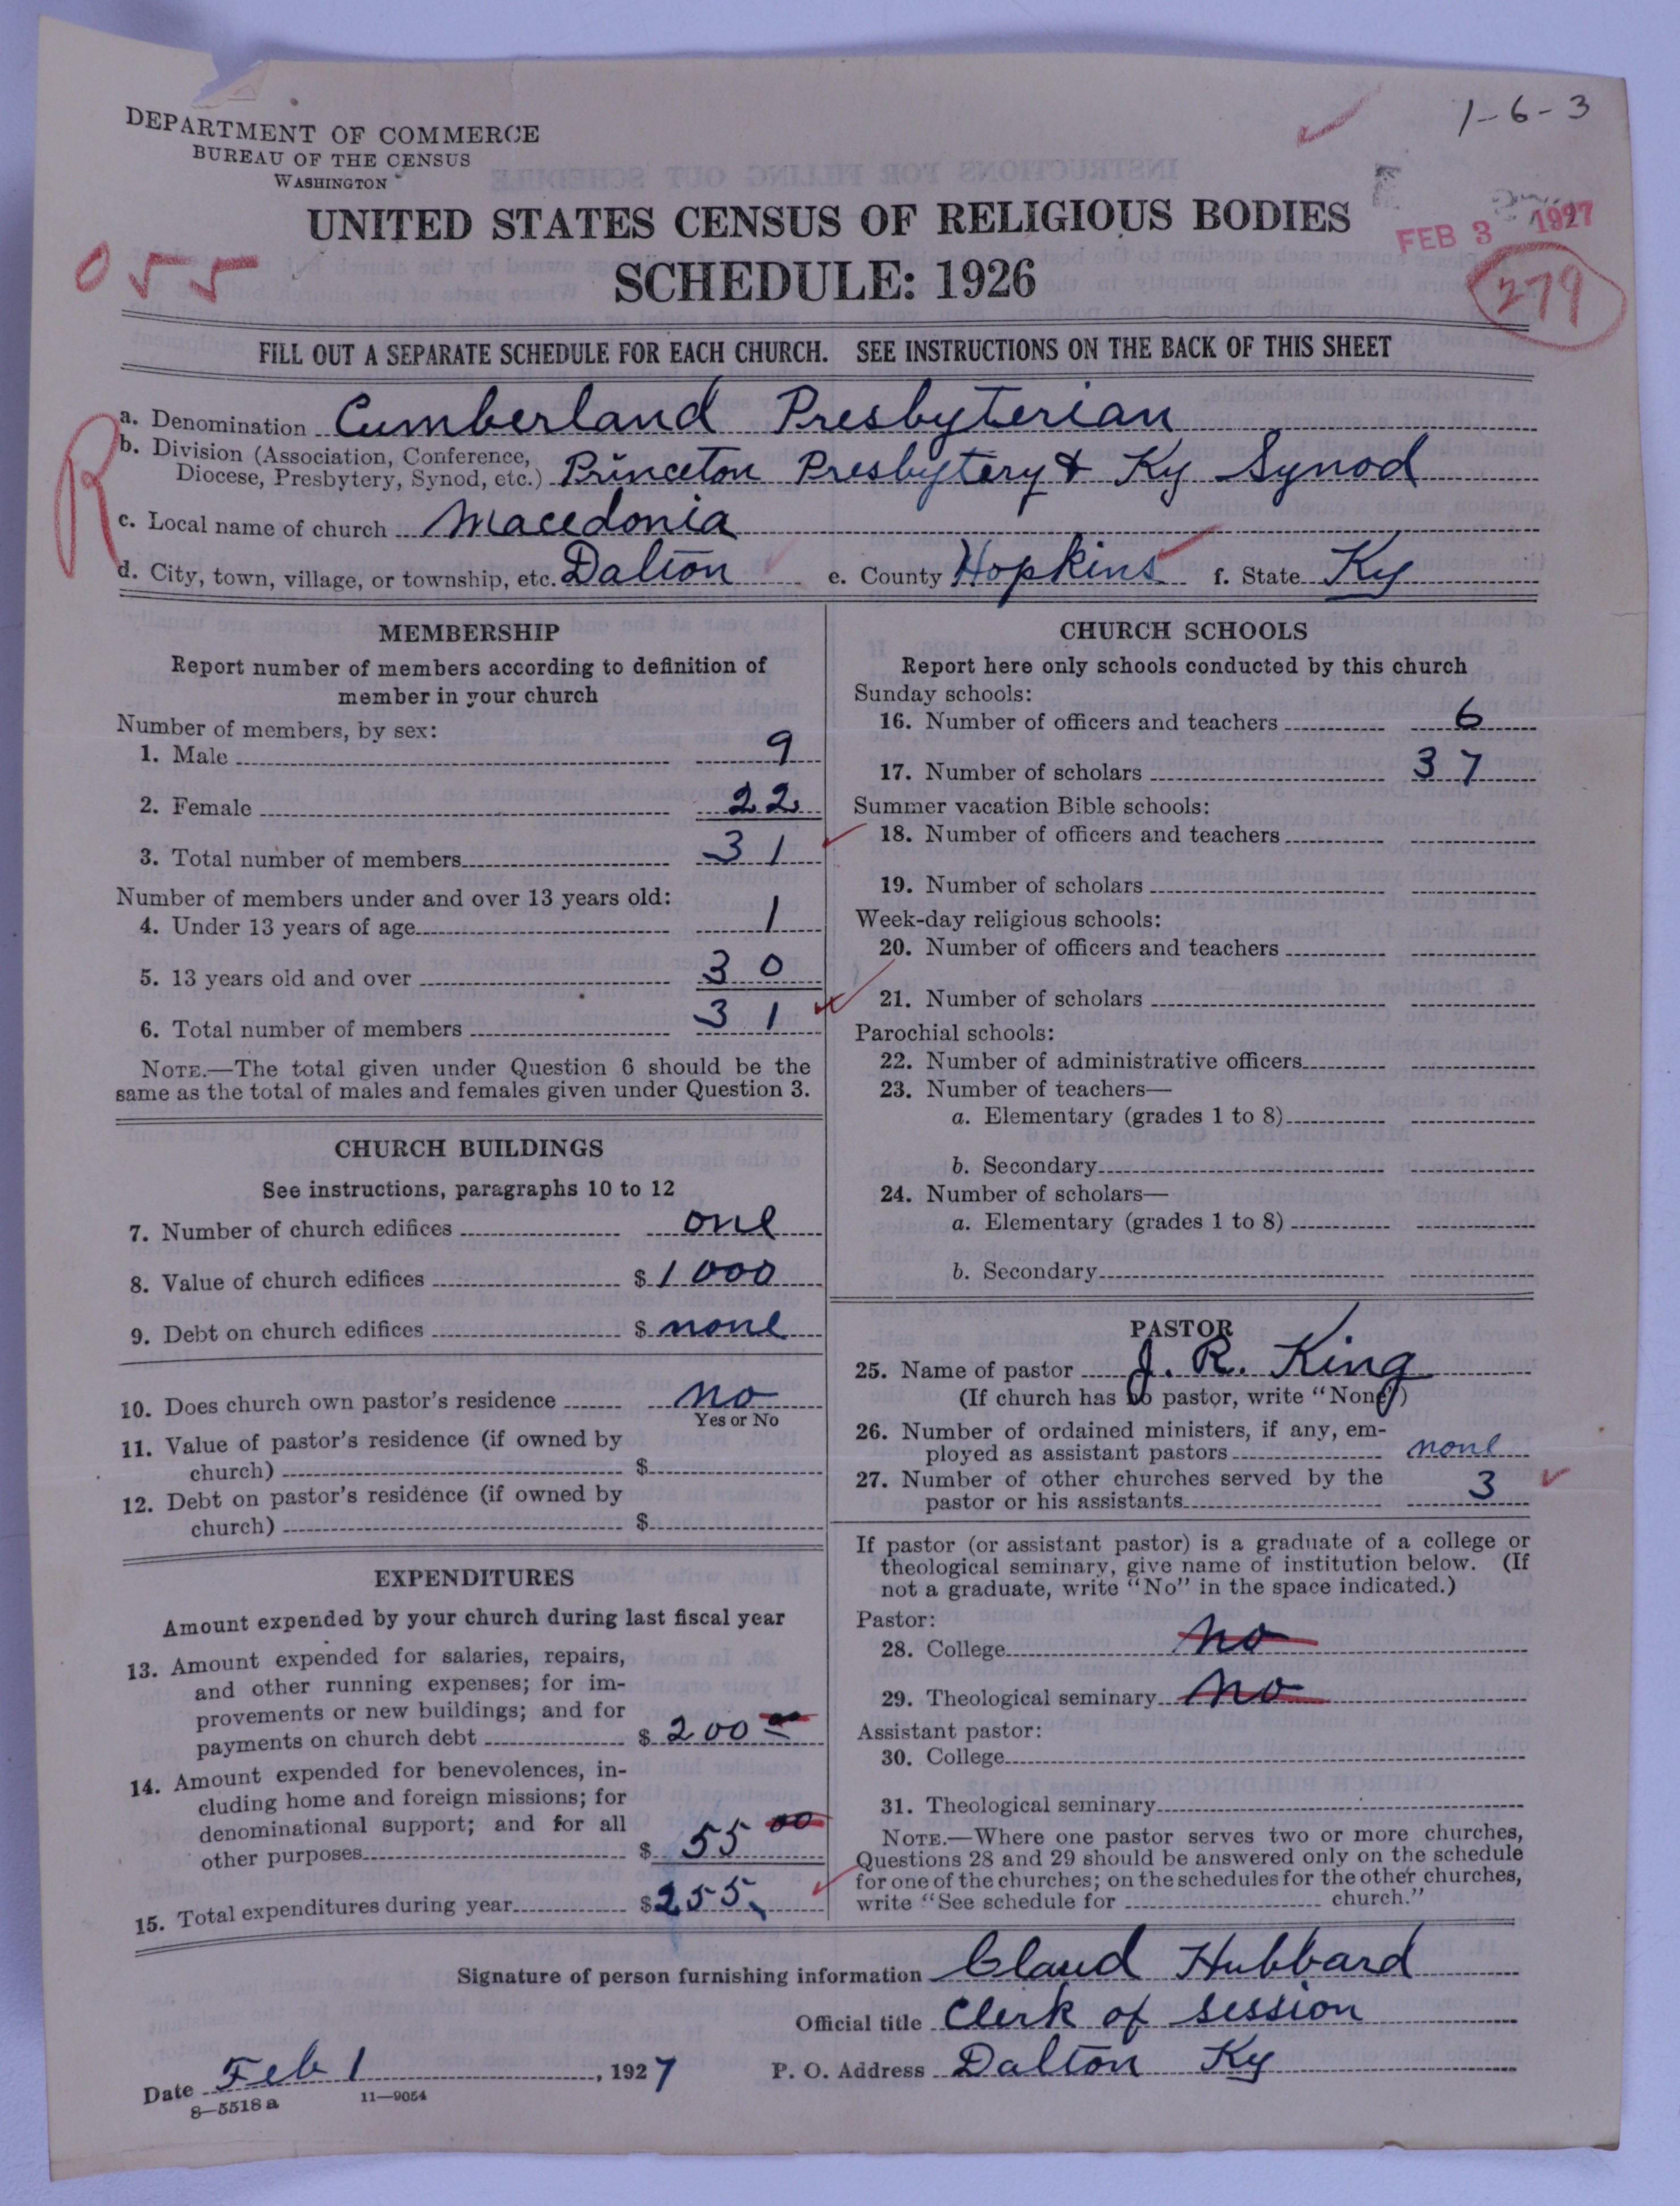 1-6-3
DEPARTMENT OF COMMERCE
BUREAU OF THE CENSUS
WASHINGTON
UNITED STATES CENSUS OF RELIGIOUS BODIES
FEB 3 1927
055
SCHEDULE: 1926
279
FILL OUT A SEPARATE SCHEDULE FOR EACH CHURCH. SEE INSTRUCTIONS ON THE BACK OF THIS SHEET
R
a. Denomination Cumberland Presbyterian
b. Division (Association, Conference,
Diocese, Presbytery, Synod, etc.) Princeton Presbytery & Ky Synod
c. Local name of church Macedonia
d. City, town, village, or township, etc. Dalton e. County Hopkins f. State Ky
MEMBERSHIP
Report number of members according to definition of
member in your church
Number of members, by sex:
1. Male 9
2. Female 22
3. Total number of members 31
Number of members under and over 13 years old:
4. Under 13 years of age 1
5. 13 years old and over 30
6. Total number of members 31
NOTE.—The total given under Question 6 should be the
same as the total of males and females given under Question 3.
CHURCH BUILDINGS
See instructions, paragraphs 10 to 12
7. Number of church edifices one
8. Value of church edifices $ 1000
9. Debt on church edifices $ none
10. Does church own pastor's residence no
Yes or No
11. Value of pastor's residence (if owned by
church) $
12. Debt on pastor's residence (if owned by
church) $
EXPENDITURES
Amount expended by your church during last fiscal year
13. Amount expended for salaries, repairs,
and other running expenses; for im-
provements or new buildings; and for
payments on church debt $ 200 00
14. Amount expended for benevolences, in-
cluding home and foreign missions; for
denominational support; and for all
other purposes $ 55 00
15. Total expenditures during year $ 255.
CHURCH SCHOOLS
Report here only schools conducted by this church
Sunday schools:
16. Number of officers and teachers 6
17. Number of scholars 37
Summer vacation Bible schools:
18. Number of officers and teachers
19. Number of scholars
Week-day religious schools:
20. Number of officers and teachers
21. Number of scholars
Parochial schools:
22. Number of administrative officers
23. Number of teachers—
a. Elementary (grades 1 to 8)
b. Secondary
24. Number of scholars—
a. Elementary (grades 1 to 8)
b. Secondary
PASTOR
25. Name of pastor J. R. King
(If church has no pastor, write "None")
26. Number of ordained ministers, if any, em-
ployed as assistant pastors none
27. Number of other churches served by the
pastor or his assistants 3
If pastor (or assistant pastor) is a graduate of a college or
theological seminary, give name of institution below. (If
not a graduate, write "No" in the space indicated.)
Pastor:
28. College no
29. Theological seminary no
Assistant pastor:
30. College
31. Theological seminary
NOTE.—Where one pastor serves two or more churches,
Questions 28 and 29 should be answered only on the schedule
for one of the churches; on the schedules for the other churches,
write "See schedule for church."
Signature of person furnishing information Claud Hubbard
Official title Clerk of session
Date Feb 1, 1927 P. O. Address Dalton Ky
8—5518 a 11—9054